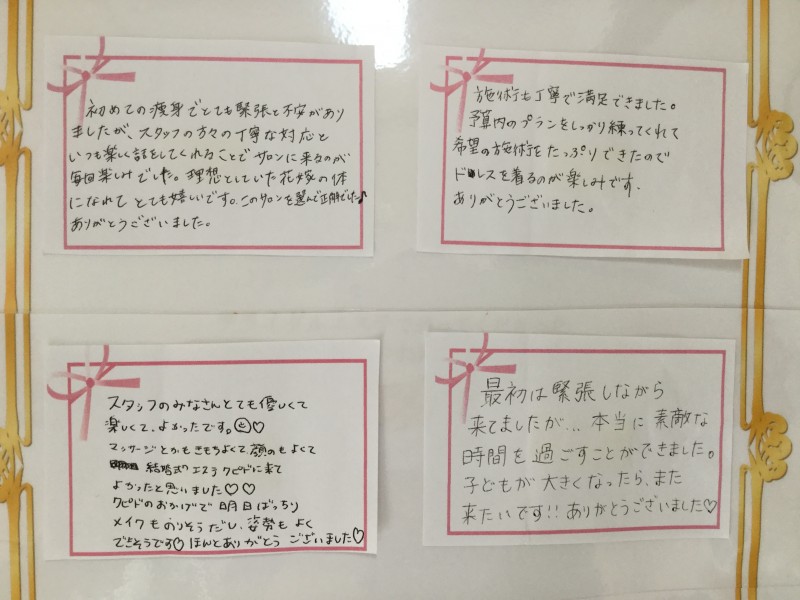 初めての痩身でとても緊張と不安があり
ましたが、スタッフの方々の丁寧な対応と
いつも楽しく話をしてくれることでサロンに来るのが
毎回楽しみでした。理想としていた花嫁の体
になれてとても嬉しいです。このサロンを選んで正解でした♪
ありがとうございました。
施術も丁寧で満足できました。
予算内のプランをしっかり練ってくれて
希望の施術をたっぷりできたので
ドレスを着るのが楽しみです.
ありがとうございました。
スタッフのみなさんとても優しくて
楽しくて、よかったです。☺♡
マッサージとかもきもちよくて、顔のもよくて
結婚式のエステ クピドに来て
よかったと思いました♡♡
クピドのおかげで明日ばっちり
メイクものりそうだし、姿勢もよく
できそうです♡ ほんとありがとう ございました♡
最初は緊張しながら
来てましたが... 本当に素敵な
時間を過ごすことができました。
子どもが大きくなったら、また
来たいです!! ありがとうございました♡